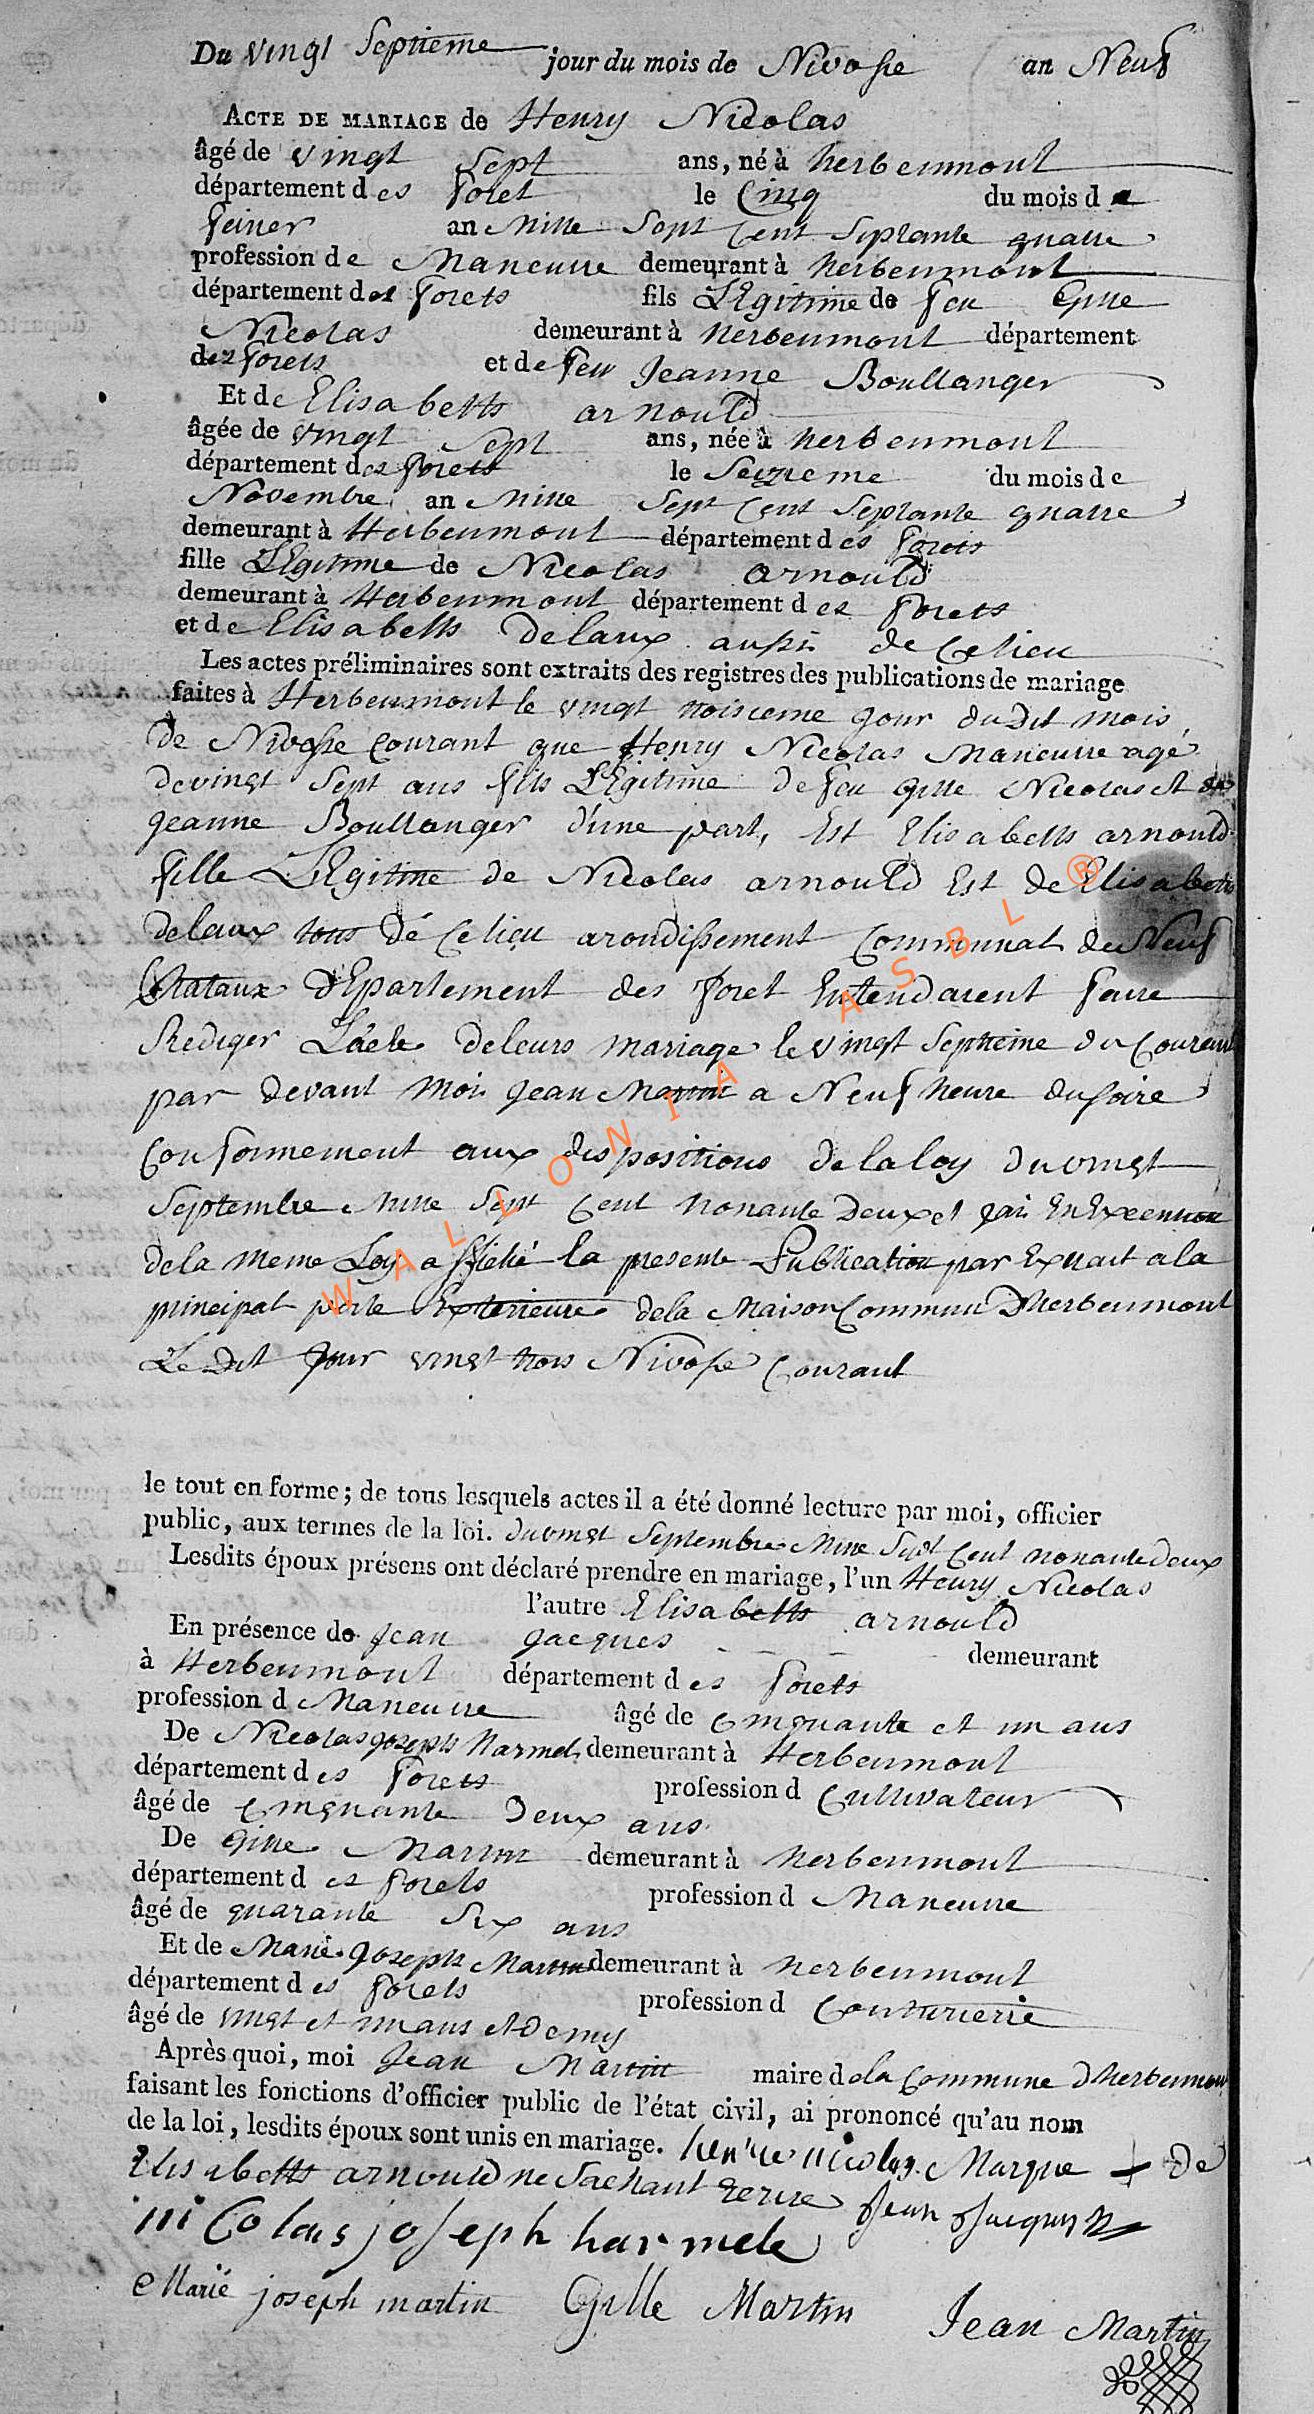 Du vingt Septieme jour du mois de Nivosse an Neuf
ACTE DE MARIAGE de Henry Nicolas
âgé de vingt sept ans, né à herbeumont
département des foret le Cinq du mois de
feiver an Mille Sept Cent Septante quatre
profession de Maneuvre demeurant à herbeumont
département des forets fils LEgitime de feu Gille
Nicolas demeurant à herbeumont département
des forets et de feu Jeanne Boullanger
Et de Elisabetts arnould
âgée de vingt Sept ans, née à herbeumont
département des forets le Seizieme du mois de
Novembre an Mille Sept Cent Septante quatre
demeurant à Herbeumont département des forets
fille LEgitime de Nicolas arnould
demeurant à Herbeumont département des forets
et de Elisabetts Delaux aussi de Celieu
Les actes préliminaires sont extraits des registres des publications de mariage
faites à Herbeumont le vingt troisieme jour du Dit mois
de Nivosse Courant que Henry Nicolas Maneuvre agé
de vingt Sept ans fils LEgitime de feu Gille Nicolas et de
Jeanne Boullanger d'une part, Est Elisabetts arnould
fille LEgitime de Nicolas arnould Est de Elisabetts
delaux tous dé Celieu arondissement Communal de Neuf
Chataux dEpartement des foret Entendarent faire
Rediger L'acte de leurs mariage le vingt Septieme du Courant
par devant moi Jean Martin a Neuf heure du soire
Conformement aux dispositions de la loy du vingt
Septembre Mille Sept Cent Nonante Deux et jai En Execution
de la meme Loy affiché la presente Publication par Extrait a la
principal porte Exterieure de la Maison Commun D'herbeumont
Le Dit Jour vingt trois Nivosse Courant
le tout en forme; de tous lesquels actes il a été donné lecture par moi, officier
public, aux termes de la loi. du vingt Septembre Mille Sept Cent nonante deux
Lesdits époux présens ont déclaré prendre en mariage, l'un Henry Nicolas
l'autre Elisabetts arnould
En présence de Jean Jacques demeurant
à Herbeumont département des forets
profession d Maneuvre âgé de Cinquante et un ans
De Nicolas Joseph harmel demeurant à Herbeumont
département des forets profession d Cultivateur
âgé de Cinquante Deux ans
De Gille Martin demeurant à herbeumont
département des forets profession d Maneuvre
âgé de quarante Six ans
Et de Marie Joseph Martin demeurant à herbeumont
département des forets profession d Couturierie
âgé de vingt et un ans et Demy
Après quoi, moi Jean Martin maire de la Commune d'herbeumont
faisant les fonctions d'officier public de l'état civil, ai prononcé qu'au nom
de la loi, lesdits époux sont unis en mariage. henrie nicolas. Marque + de
Elisabetts arnould ne Sachant Ecrire Jean Jacques
nicolas joseph harmele
Marie joseph martin Gille Martin Jean Martin
WALLONIA ASBL ®